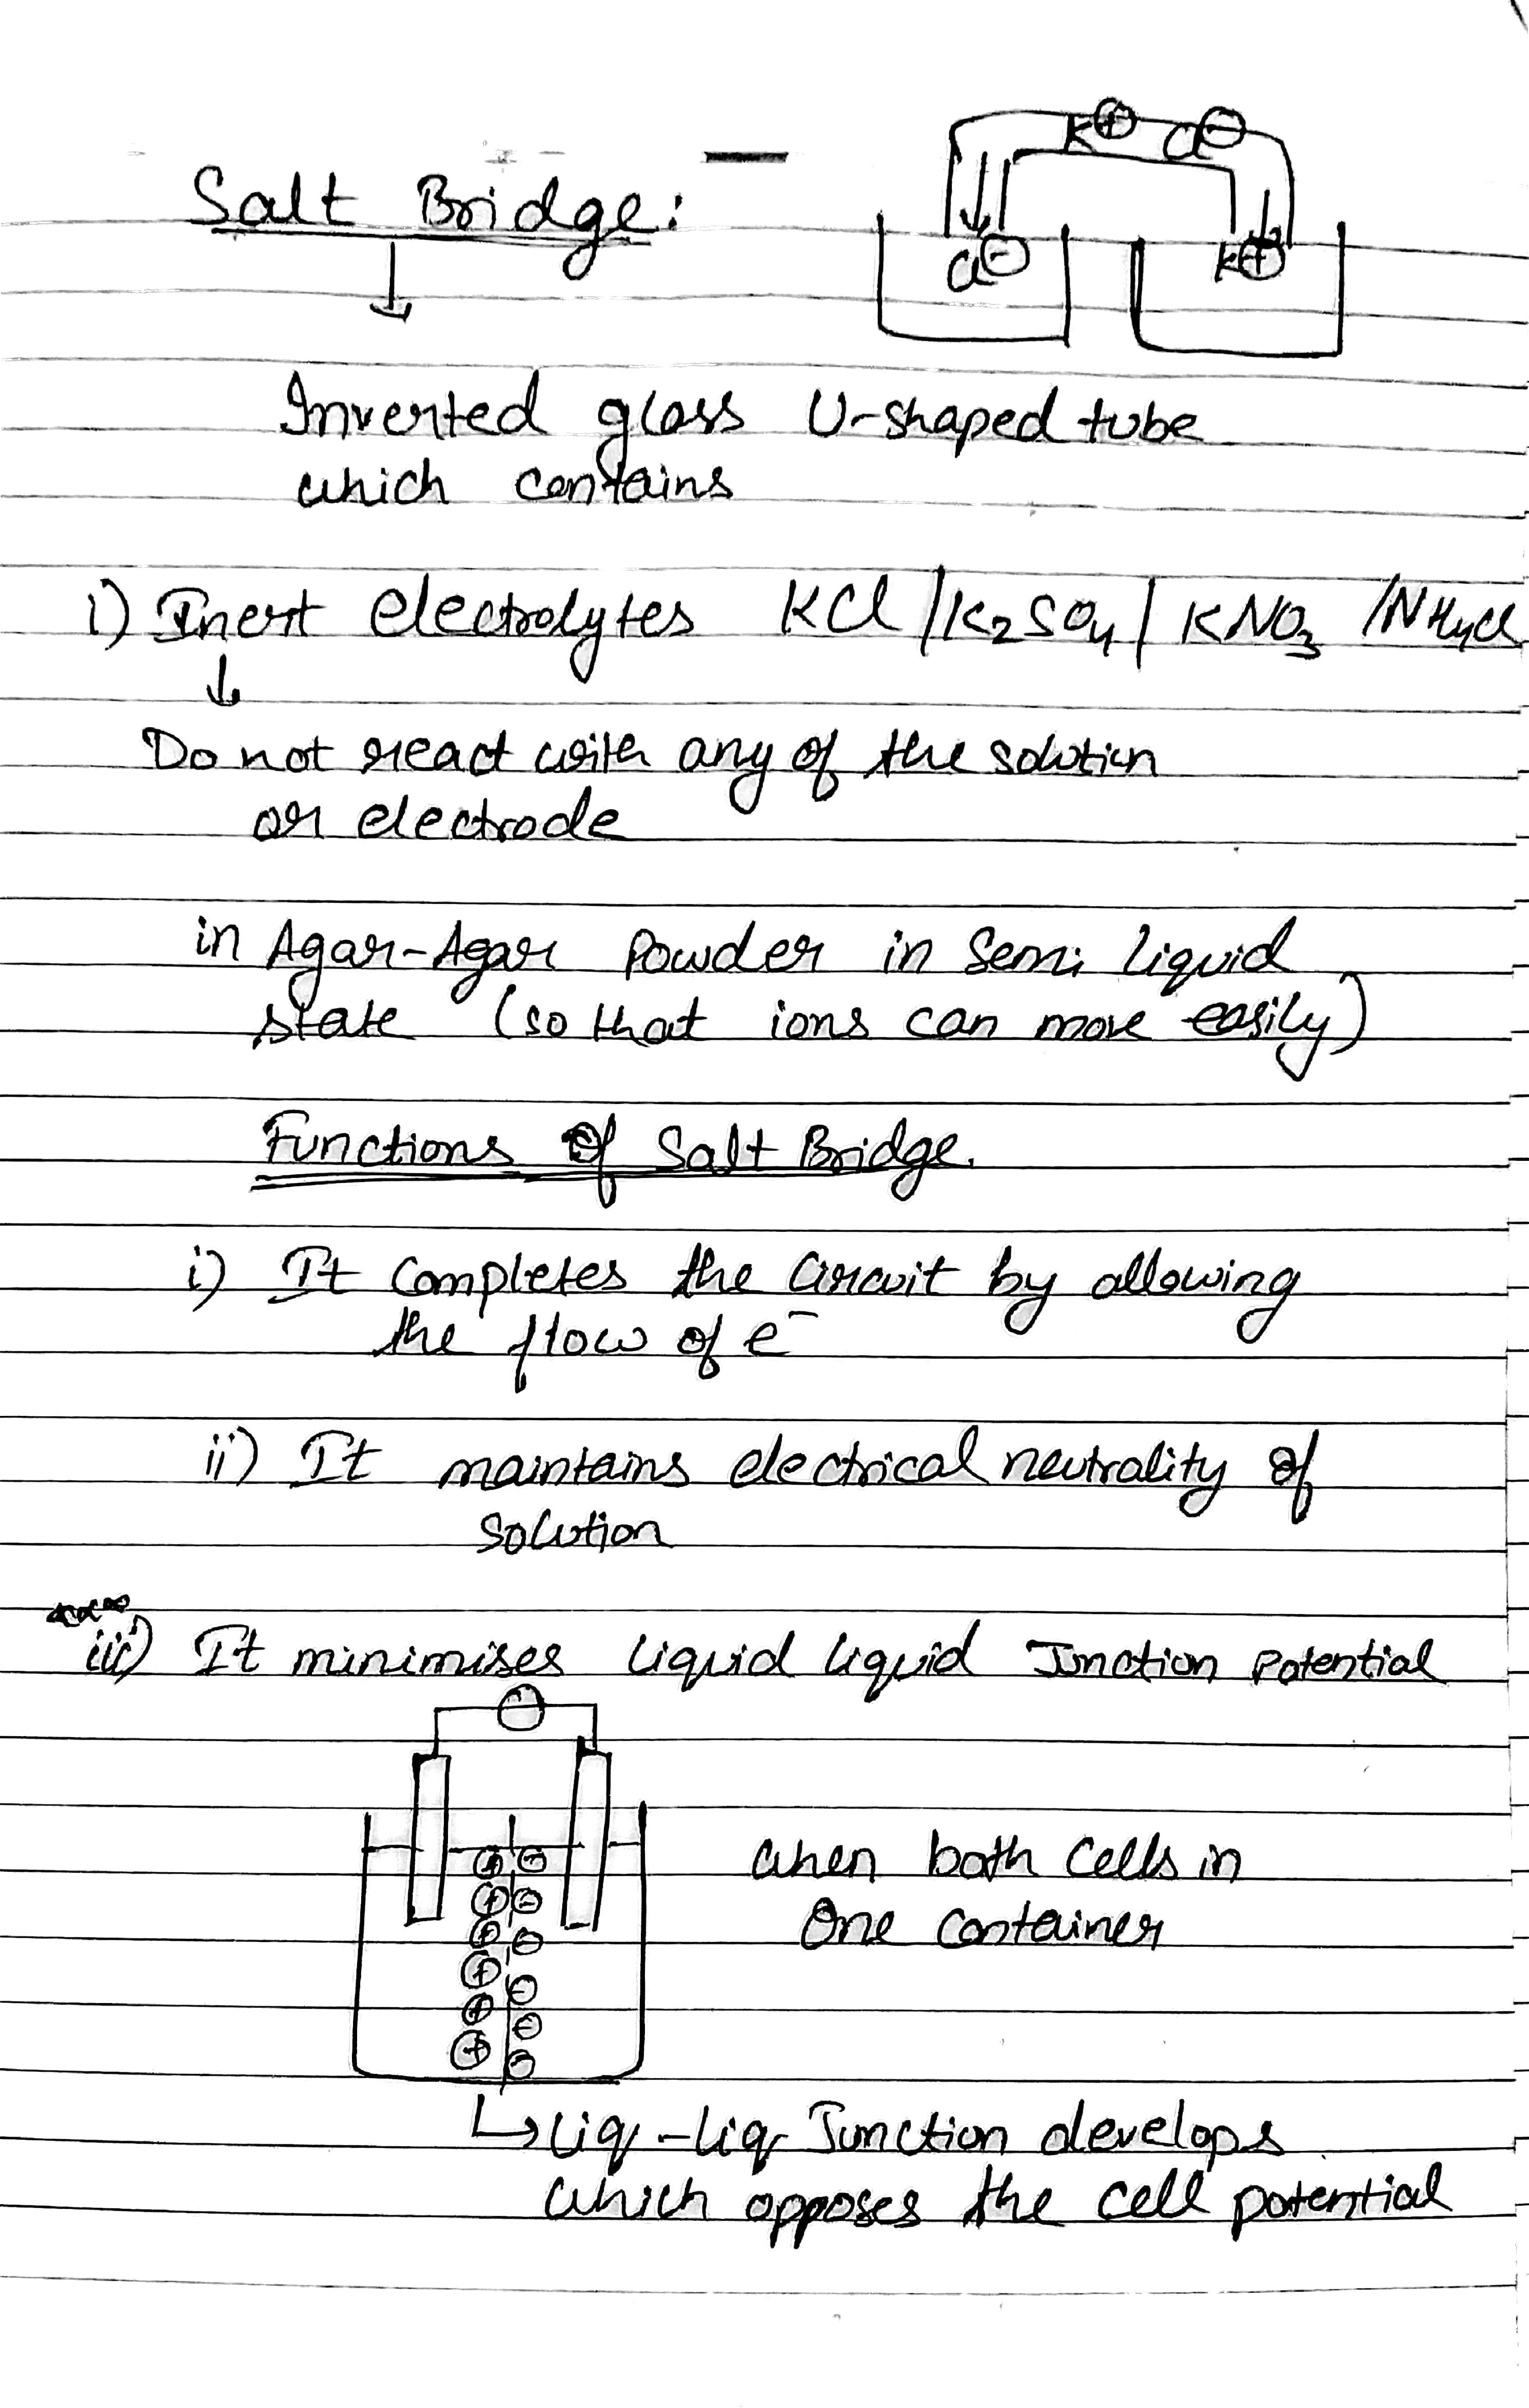 K⊕ Cl⊖
Salt Bridge:
Cl⊖ K⊕
Inverted glass U-shaped tube
which contains
i) Inert electrolytes KCl / K₂SO₄ / KNO₃ / NH₄Cl
↓
Do not react with any of the solution
or electrode
in Agar-Agar Powder in Semi liquid
state (so that ions can move easily)
Functions of Salt Bridge.
i) It completes the Circuit by allowing
the flow of e⁻
ii) It maintains electrical neutrality of
solution
iii) It minimises liquid liquid Junction Potential
⊕ ⊖
⊕ ⊖
⊕ ⊖
⊕ ⊖
⊕ ⊖
⊕ ⊖
when both Cells in
One Container
↳ liq-liq Junction develops
which opposes the cell potential